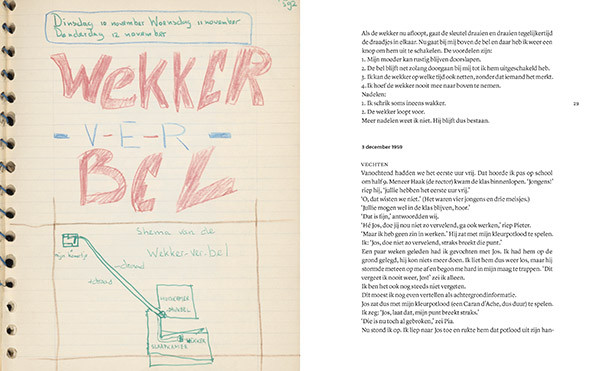 192
Dinsdag 10 november Woensdag 11 november
Donderdag 12 november
WekkeR
-V-E-R-
BEL
Shema van die
Wekker-ver-bel
mijn kamertje
draad
draad
SLAAPKAMER
WEKKER
Als de wekker nu afloopt, gaat de sleutel draaien en draaien tegelijkertijd
de draadjes in elkaar. Nu gaat bij mij boven de bel en daar heb ik weer een
knop om hem uit te schakelen. De voordelen zijn:
1. Mijn moeder kan rustig blijven doorslapen.
2. De bel blijft net zolang doorgaan bij mij tot ik hem uitgeschakeld heb.
3. Ik kan de wekker op welke tijd ook zetten, zonder dat iemand het merkt.
4. Ik hoef de wekker nooit mee naar boven te nemen.
Nadelen:
1. Ik schrik soms ineens wakker.
2. De wekker loopt voor.
Meer nadelen weet ik niet. Hij blijft dus bestaan.
29
3 december 1959
VECHTEN
Vanochtend hadden we het eerste uur vrij. Dat hoorde ik pas op school
om half 9. Meneer Haak (de rector) kwam de klas binnenlopen. ‘Jongens!’
riep hij, ‘Jullie hebben het eerste uur vrij.’
‘O, dat wisten we niet.’ (Het waren vier jongens en drie meisjes.)
‘Jullie mogen wel in de klas blijven, hoor.’
‘Dat is fijn,’ antwoordden wij.
‘Hé Jos, doe jij nou niet zo vervelend, ga ook werken,’ riep Pieter.
‘Maar ik heb geen zin in werken.’ Hij zat met mijn kleurpotlood te spelen.
Ik: ‘Jos, doe niet zo vervelend, straks breekt die punt.’
Een paar weken geleden had ik gevochten met Jos. Ik had hem op de
grond gelegd, hij kon niets meer doen. Ik liet hem dus weer los, maar hij
stormde meteen op me af en begon me hard in mijn maag te trappen. ‘Dit
vergeet ik nooit weer, Jos!’ zei ik alleen.
Ik ben het ook nog steeds niet vergeten.
Dit moest ik nog even vertellen als achtergrondinformatie.
Jos zat dus met mijn kleurpotlood (een Caran d’Ache, dus duur) te spelen.
Ik zeg: ‘Jos, laat dat, mijn punt breekt straks.’
‘Die is nu toch al gebroken,’ zei Pia.
Nu stond ik op. Ik liep naar Jos toe en rukte hem dat potlood uit zijn han-